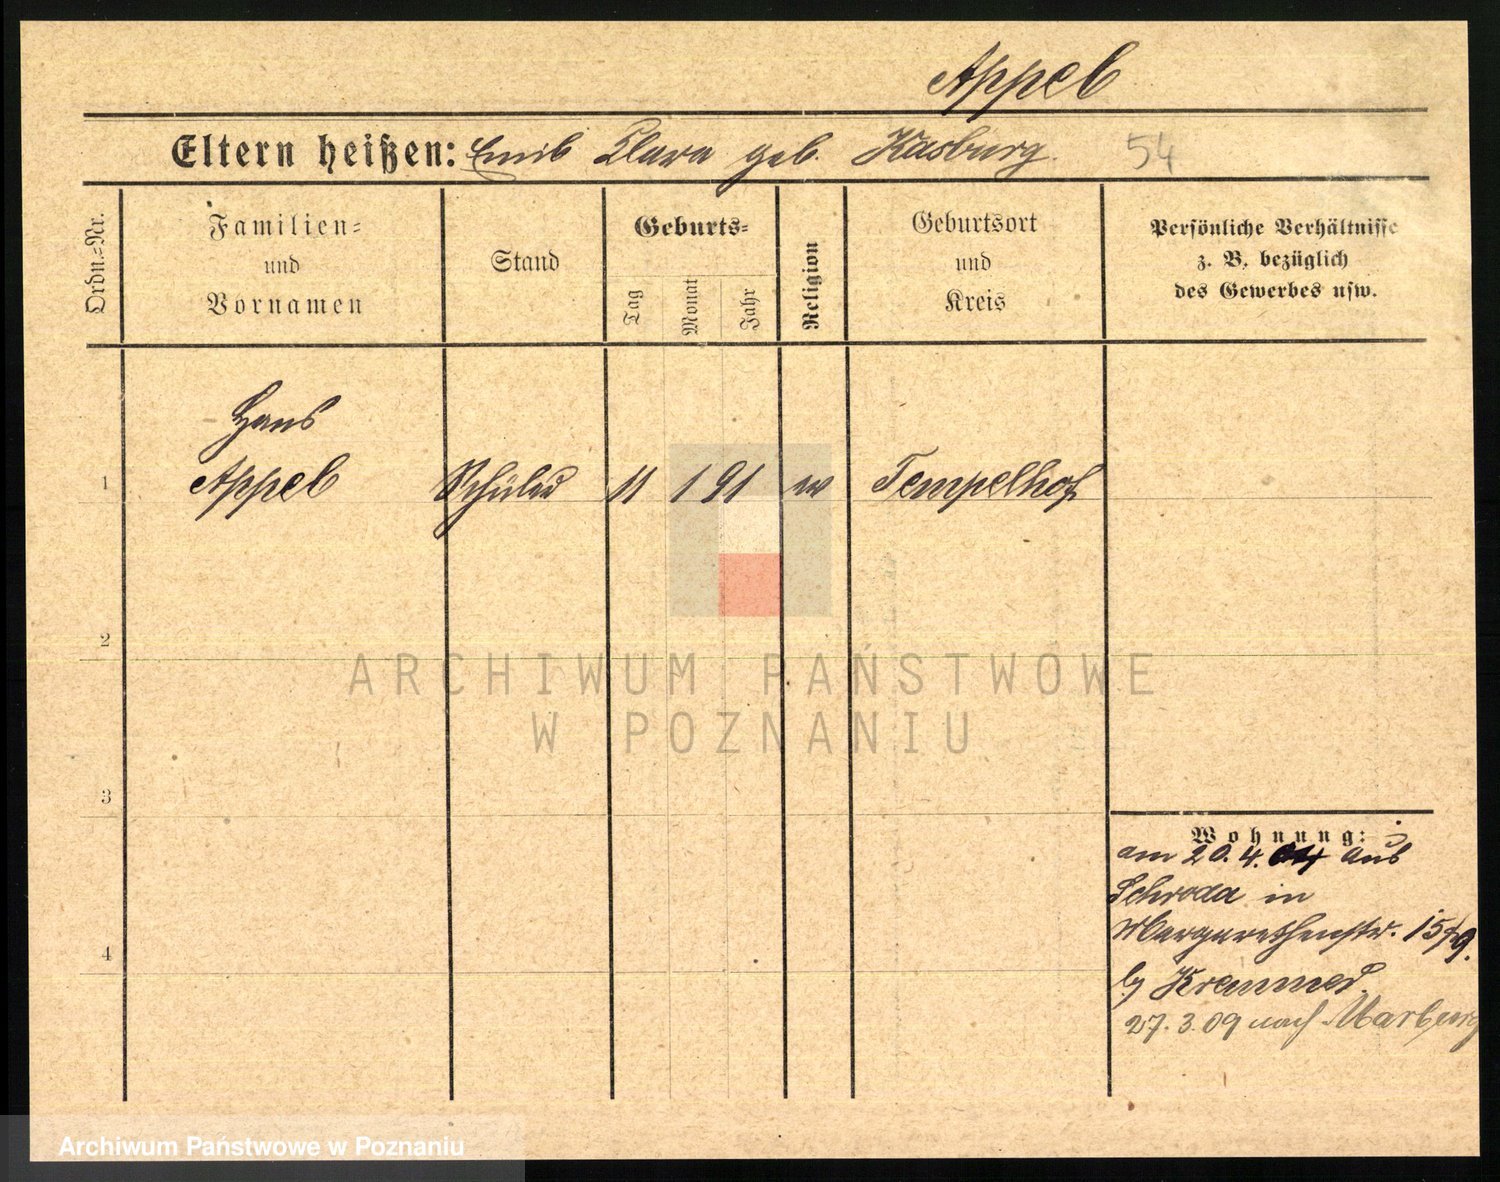 Appel
Eltern heißen: Emil Clara geb. Kasburg. 54
Ordn.=Nr.
Familien=
und
Vornamen
Stand
Geburts=
Tag
Monat
Jahr
Religion
Geburtsort
und
Kreis
Persönliche Verhältnisse
z. B. bezüglich
des Gewerbes usw.
Hans
1 Appel Schüler 11 1 91 ev Tempelhof
2
ARCHIWUM PAŃSTWOWE
W POZNANIU
3
Wohnung:
am 20.4.04 aus
Schroda in
Margarethenstr.
4
27.3.09 nach Marburg
Archiwum Państwowe w Poznaniu